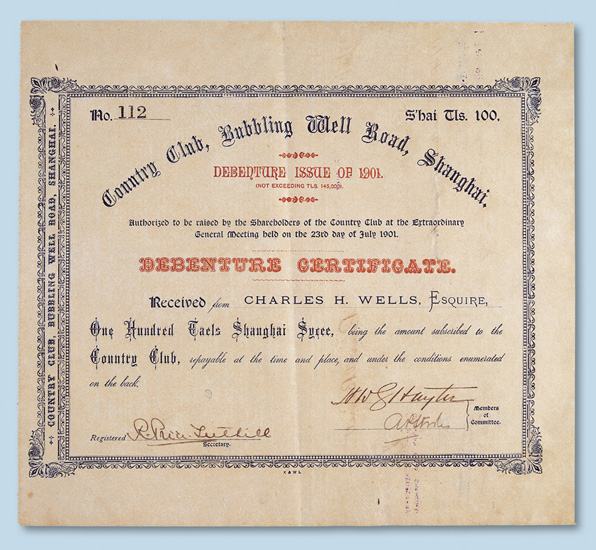 No. 112
S'hai Tls. 100.
Country Club, Bubbling Well Road, Shanghai.
DEBENTURE ISSUE OF 1901.
(NOT EXCEEDING TLS. 145,000).
Authorized to be raised by the Shareholders of the Country Club at the Extraordinary
General Meeting held on the 23rd day of July 1901.
DEBENTURE CERTIFICATE.
Received from CHARLES H. WELLS, ESQUIRE,
One Hundred Taels Shanghai Sycee, being the amount subscribed to the
Country Club, repayable at the time and place, and under the conditions enumerated
on the back.
Members
of
Committee.
Registered
Secretary.
K & W L
COUNTRY CLUB, BUBBLING WELL ROAD, SHANGHAI.